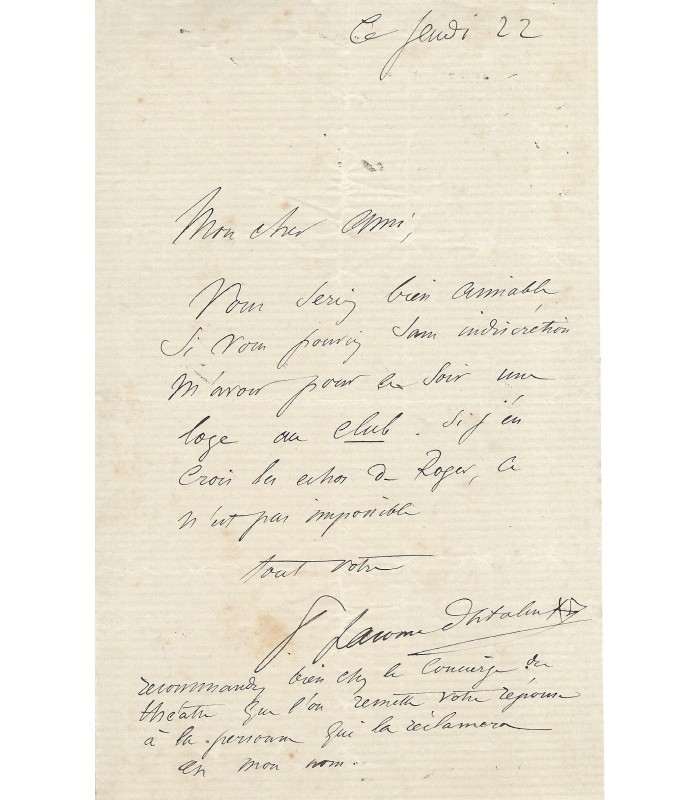 Ce Jeudi 22
Mon cher ami,
Vous seriez bien aimable
Si vous pouviez sans indiscrétion
m'avoir pour ce soir une
loge au club. Si j'en
crois les echos de Roger, ce
n'est pas impossible
tout votre
recommandez bien chez le concierge du
théatre que l'on remette votre réponse
à la personne qui la réclamera
en mon nom.